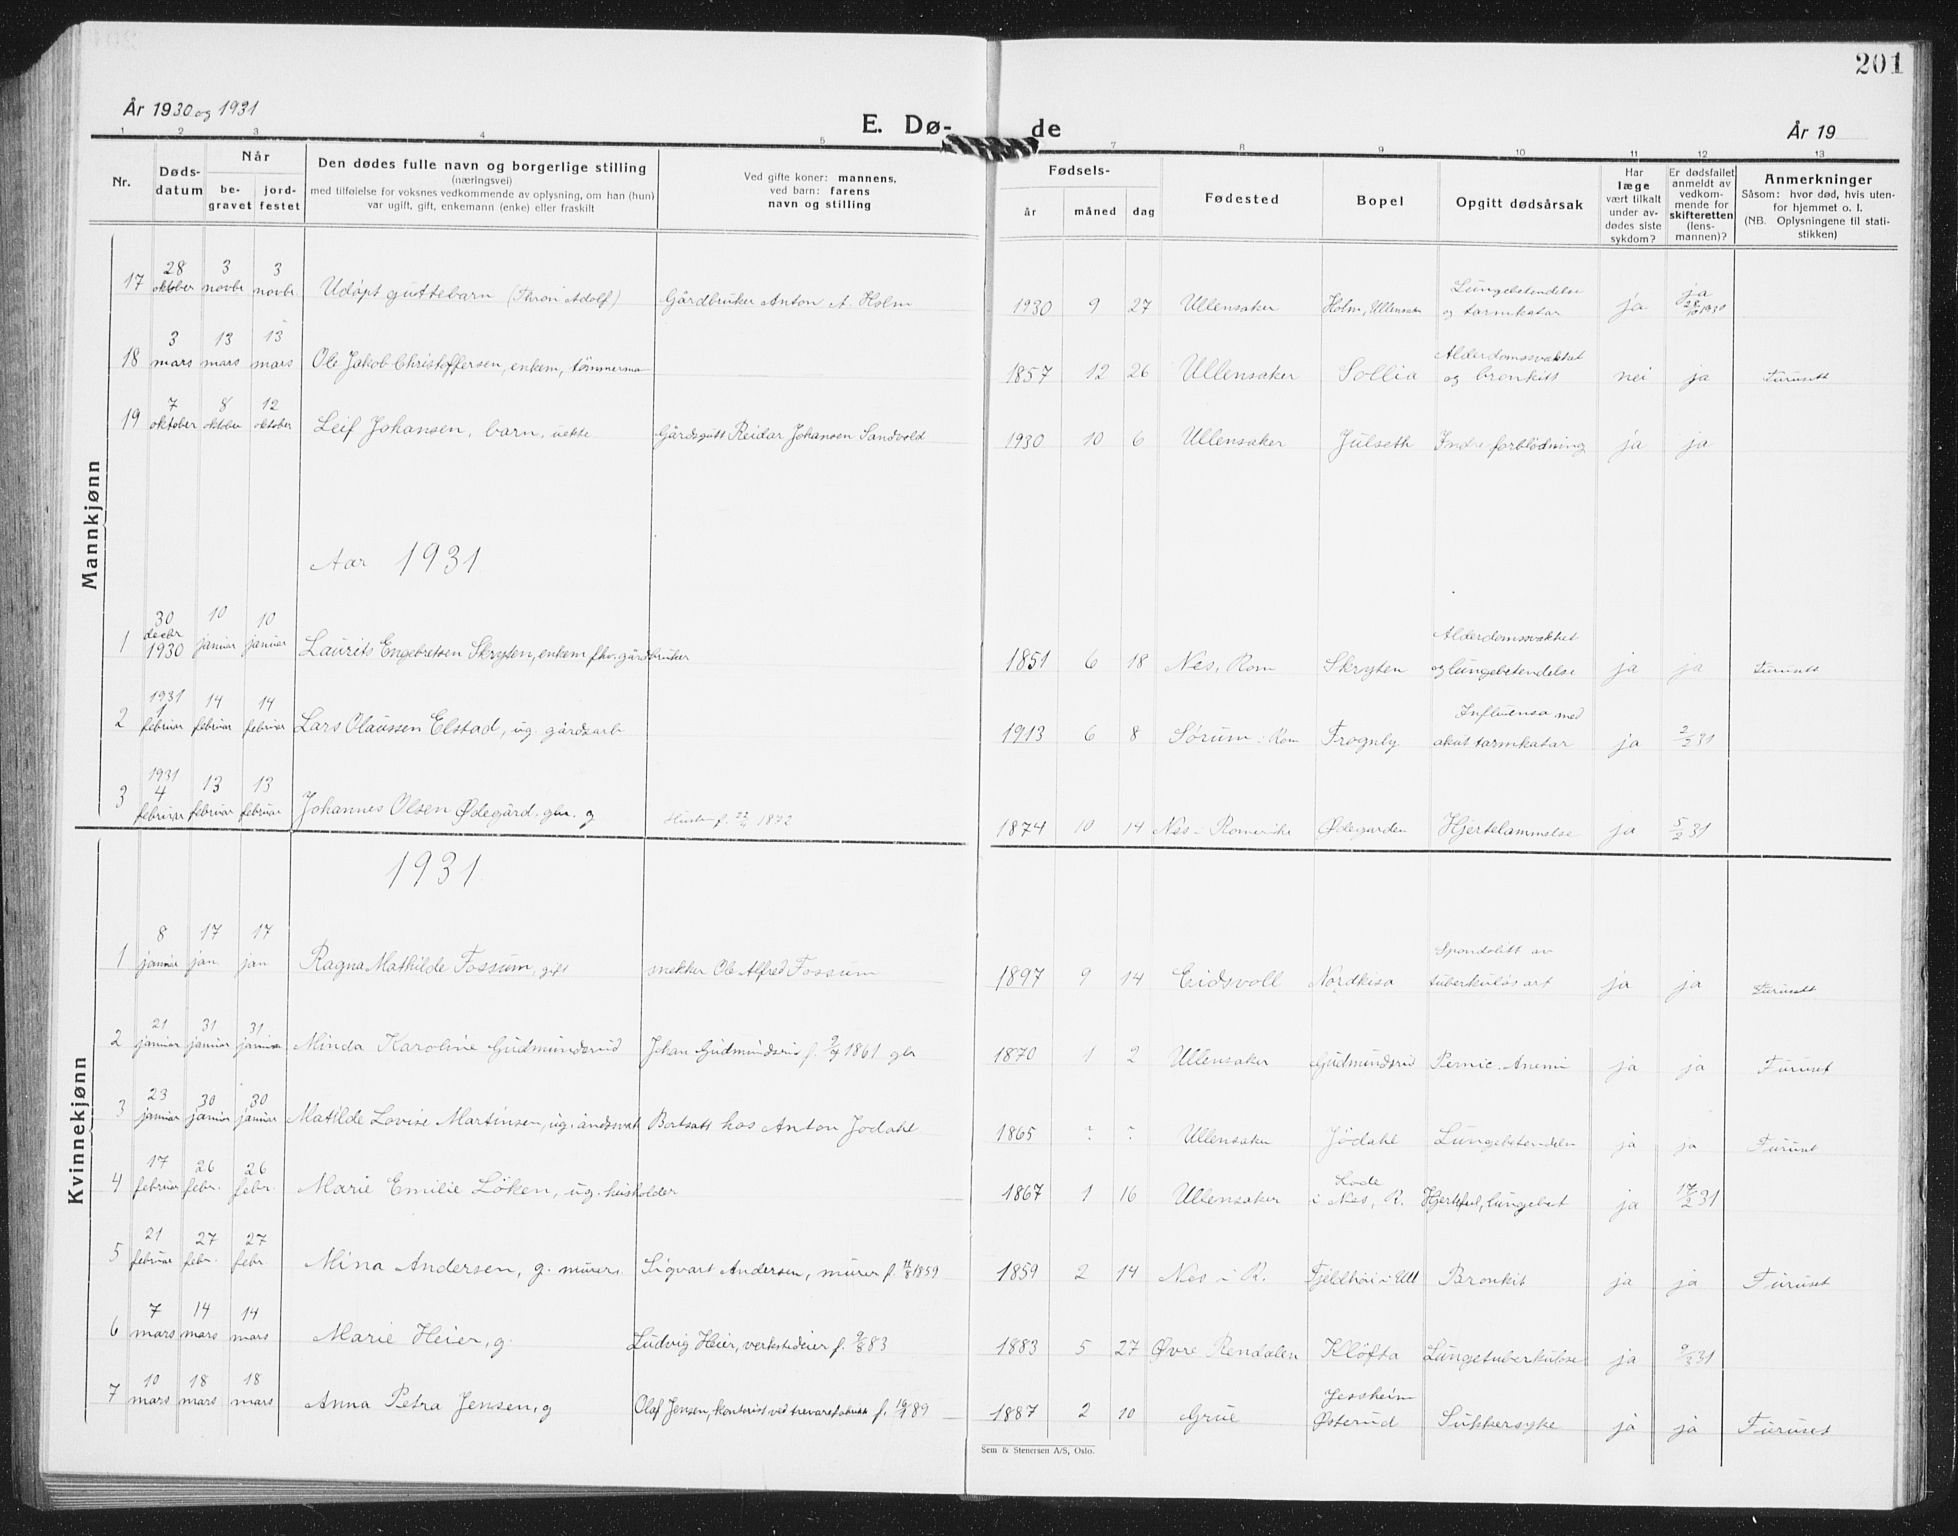 201
År 1930 og 1931
E. Dø- de
År 19
1 2 3 4 5 7 8 9 10 11 12 13
Nr.
Døds-
datum
Når
be-
gravet
jord-
festet
Den dødes fulle navn og borgerlige stilling
(næringsvei)
med tilføielse for voksnes vedkommende av oplysning, om han (hun)
var ugift, gift, enkemann (enke) eller fraskilt
Ved gifte koner: mannens,
ved barn: farens
navn og stilling
Fødsels-
år måned dag
Fødested
Bopel
Opgitt dødsårsak
Har
læge
vært tilkalt
under av-
dødes siste
sykdom?
Er dødsfallet
anmeldt av
vedkom-
mende for
skifteretten
(lens-
mannen)?
Anmerkninger
Såsom: hvor død, hvis uten-
for hjemmet o. l.
(NB. Oplysningene til stati-
stikken)
Mannkjønn
17 28 oktober 3 novbr 3 novbr Udøpt guttebarn (Thron Adolf) Gårdbruker Anton A. Holm 1930 9 27 Ullensaker Holm, Ullensaker Lungebetendelse og tarmkatar ja ja 28/10 1930
18 3 mars 13 mars 13 mars Ole Jakob Christoffersen, enkem, tømmerma 1857 12 26 Ullensaker Sollia Alderdomssvakhet og bronkitt nei ja Furusett
19 7 oktober 8 oktober 12 oktober Leif Johansen, barn, uekte Gårdsgutt Reidar Johansen Sandvold 1930 10 6 Ullensaker Julseth Indre forblødning ja ja
Aar 1931
1 30 decbr 1930 10 januar 10 januar Laurits Engebretsen Skryten, enkem fhv. gårdbruker 1851 6 18 Nes, Rom Skryten Alderdomssvakhet og lungebetendelse ja ja Furusett
2 1931 1 februar 14 februar 14 februar Lars Olaussen Elstad, ug. gårdsarb 1913 6 8 Sørum i Rom Frogneby Influensa med akut tarmkatar ja 2/2 31
3 1931 4 februar 13 februar 13 februar Johannes Olsen Ødegård, gbr. g Hustru f. 22/4 1872 1874 10 14 Nes - Romerike Ødegarden Hjertelammelse ja 5/2 31
Kvinnekjønn
1931
1 8 januar 17 jan. 17 jan Ragna Mathilde Fossum, gift snekker Ole Alfred Fossum 1897 9 14 Eidsvoll Nordkisa Spondolitt av tuberkuløs art ja ja Furusett
2 21 januar 31 januar 31 januar Minda Karoline Gudmundsrud Johan Gudmundsrud f. 9/9 1861 gbr 1870 1 2 Ullensaker Gudmundsrud Pernic. Anemi ja ja Furuset
3 23 januar 30 januar 30 januar Matilde Lovise Martinsen, ug. åndssvak Bortsatt hos Anton Jødahl 1865 ? ? Ullensaker Jødahl Lungebetendelse ja ja Furuset
4 17 februar 26 febr. 26 febr. Marie Emilie Løken, ug. husholder 1867 1 16 Ullensaker i Nes, R. Hjertefeil, lungebet ja 17/2 31
5 21 februar 27 febr. 27 febr. Mina Andersen, g. murers Sigvart Andersen, murer f. 11/8 1859 1859 2 14 Nes i R. Fjeldhøi i Ull Bronkit ja ja Furuset
6 7 mars 14 mars 14 mars Marie Heier, g. Ludvig Heier, verkstedeier f. 9/8 83 1883 5 27 Øvre Rendalen Kløfta Lungetuberkulose ja 9/3 31
7 10 mars 18 mars 18 mars Anna Petra Jensen, g Olaf Jensen, kontorist ved trevarefabrikk f. 16/9 89 1887 2 10 Grue Jessheim Østerud Sukkersyke ja ja Furuset
Sem & Stenersen A/S, Oslo.